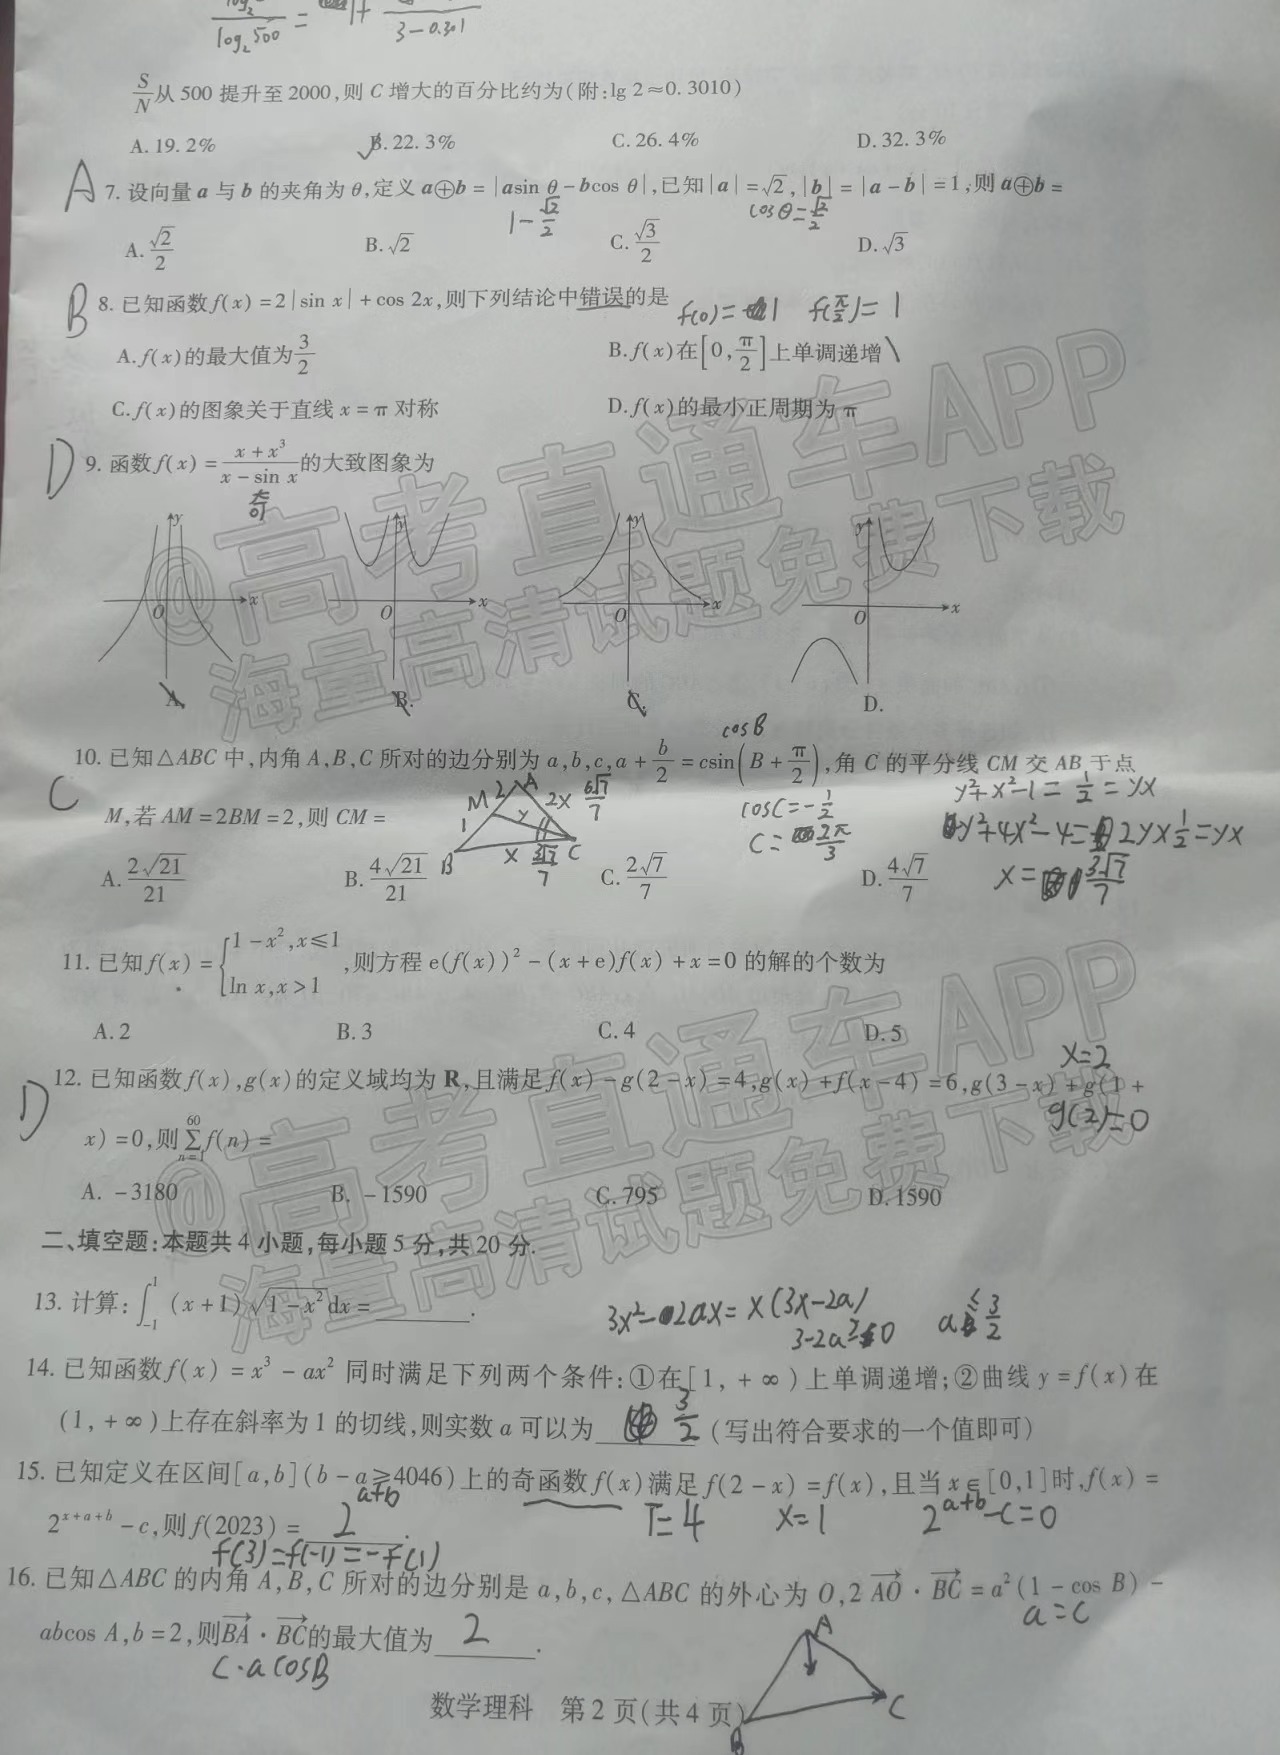 log₂500 = 1+ 3-0.301
S/N从500提升至2000,则C增大的百分比约为(附:lg 2≈0.3010)
A.19.2% B.22.3% C.26.4% D.32.3%
A 7.设向量a与b的夹角为θ,定义a⊕b=|asin θ-bcos θ|,已知|a|=√2,|b|=|a-b|=1,则a⊕b=
1-√2/2 cosθ=√2/2
A.√2/2 B.√2 C.√3/2 D.√3
B 8.已知函数f(x)=2|sin x|+cos 2x,则下列结论中错误的是 f(0)=1 f(π/2)=1
A.f(x)的最大值为3/2 B.f(x)在[0,π/2]上单调递增
C.f(x)的图象关于直线x=π对称 D.f(x)的最小正周期为π
D 9.函数f(x)=(x+x³)/(x-sin x)的大致图象为
奇
y y y y
O x O x O x O x
A. B. C. D.
cosB
10.已知△ABC中,内角A,B,C所对的边分别为a,b,c,a+b/2=csin(B+π/2),角C的平分线CM交AB于点
C M,若AM=2BM=2,则CM=
M 2 A 2x 6√7/7 1 y B x 3√7/7 C
cosC=-1/2
C=2π/3
y²+x²-1=1/2=yx
y²+4x²-4=2yx1/2=yx
x=3√7/7
A.2√21/21 B.4√21/21 C.2√7/7 D.4√7/7
11.已知f(x)={1-x²,x≤1 ln x,x>1,则方程e(f(x))²-(x+e)f(x)+x=0的解的个数为
A.2 B.3 C.4 D.5
x=2
D 12.已知函数f(x),g(x)的定义域均为R,且满足f(x)-g(2-x)=4,g(x)+f(x-4)=6,g(3-x)+g(1+
g(2)=0
x)=0,则∑(n=1→60)f(n)=
A.-3180 B.-1590 C.795 D.1590
二、填空题:本题共4小题,每小题5分,共20分.
13.计算:∫₋₁¹(x+1)√(1-x²)dx=______.
3x²-2ax=x(3x-2a)
3-2a≥0 a≤3/2
14.已知函数f(x)=x³-ax²同时满足下列两个条件:①在[1,+∞)上单调递增;②曲线y=f(x)在
(1,+∞)上存在斜率为1的切线,则实数a可以为 3/2 (写出符合要求的一个值即可)
15.已知定义在区间[a,b](b-a≥4046)上的奇函数f(x)满足f(2-x)=f(x),且当x∈[0,1]时,f(x)=
a+b T=4 x=1 2^(a+b)-c=0
2^(x+a+b)-c,则f(2023)= 2 .
f(3)=f(-1)=-f(1)
16.已知△ABC的内角A,B,C所对的边分别是a,b,c,△ABC的外心为O,2AO·BC=a²(1-cos B)-
a=c
abcos A,b=2,则BA·BC的最大值为 2 .
c·acosB
A B C
数学理科 第2页(共4页)
@高考直通车APP
海量高清试题免费下载
@高考直通车APP
海量高清试题免费下载